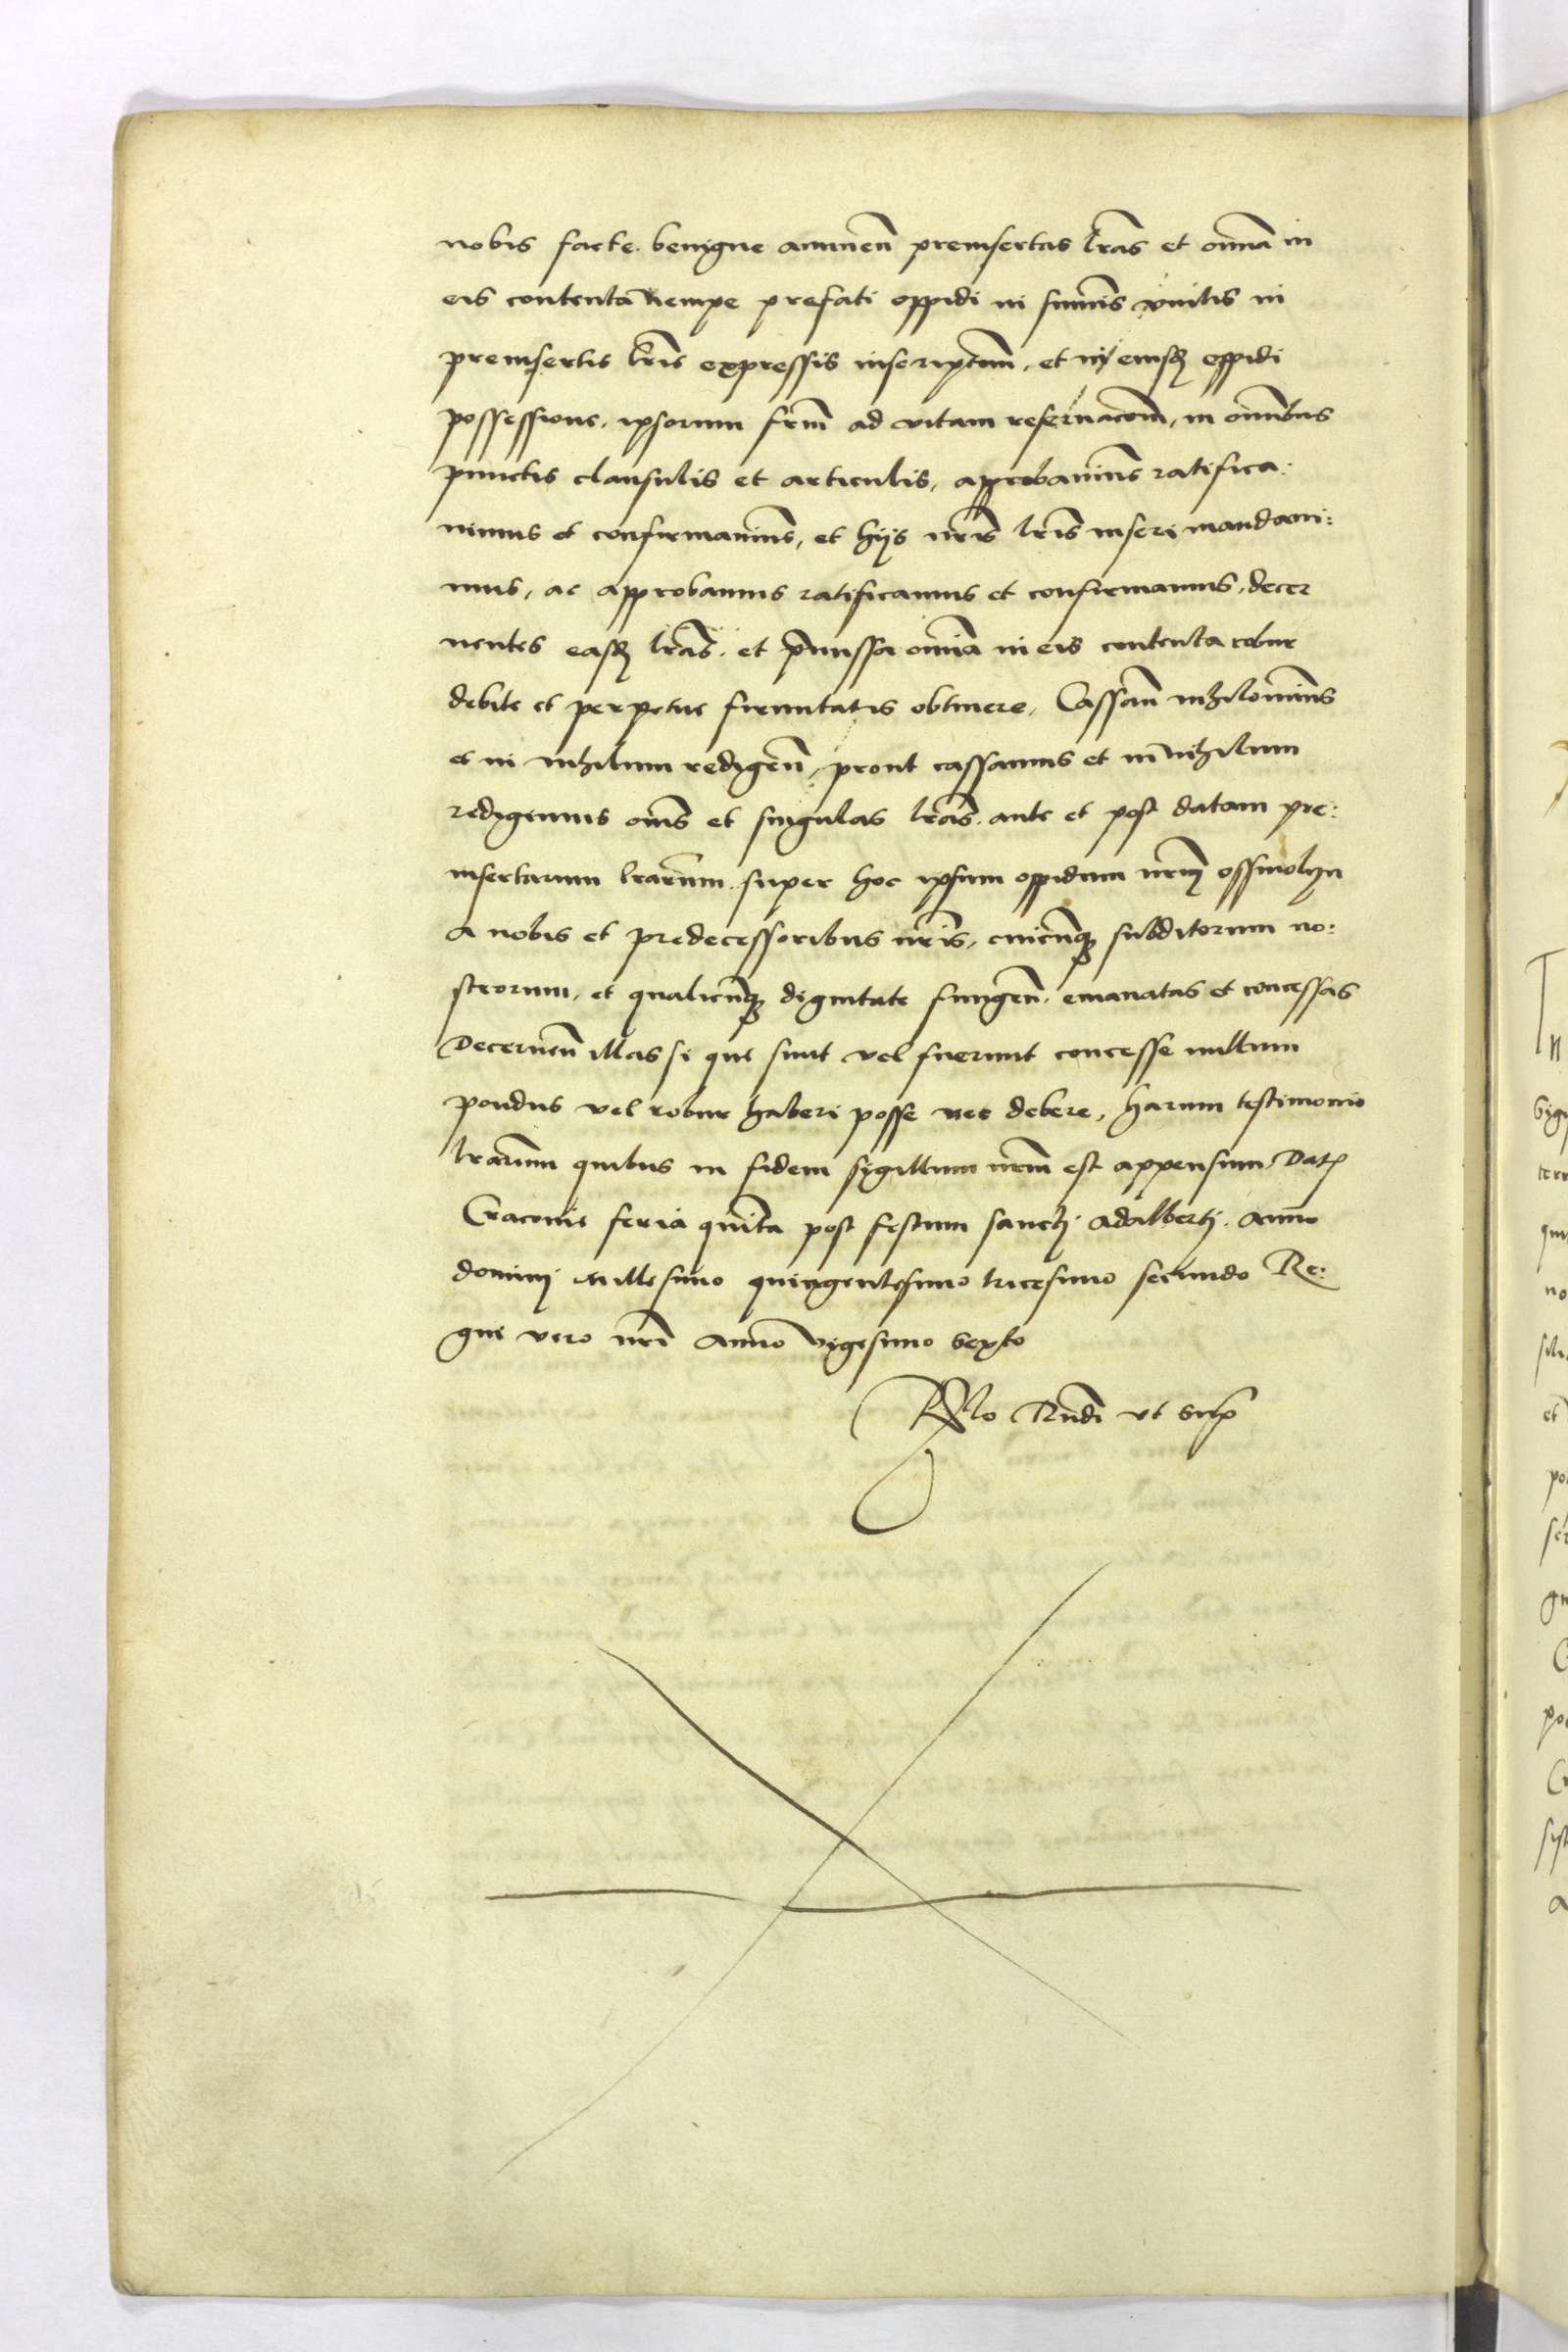 nobis facte. benigne annuen̄ preinsertas lr̄as et om̄ia in
eis contenta nempe prefati oppidi in summis vnitis in
preinsertis lr̄is expressis inscriptom̄, et in eiusdꝫ oppidi
possessione, ipsorum frm̄ ad vitam reseruacom̄, in om̄ibus
punctis clausulis et articulis, approbauimus ratifica:
uimus et confirmauimus, et hijs nr̄is lr̄is inseri mandaui:
mus, ac approbamus ratificamus et confirmamus, decer
nentes easdꝫ lr̄as. et p̄missa om̄ia in eis contenta robur
debite et perpetue firmitatis obtinere, Cassan̄ nihilominus
et in nihilum redigen̄, prout cassamus et in nihilum
redigimus om̄s et singulas lr̄as. ante et post datam pre:
insertarum lr̄arum. super hoc ipsum oppidum nr̄m ossmolyn
a nobis et predecessoribus nr̄is, cuicunqꝫ subditorum no:
strorum, et qualicunqꝫ dignitate fungen̄. emanatas et concessas
Decernen̄ illas si que sunt vel fuerunt concesse nullum
pondus vel robur haberi posse nec debere, harum testimonio
lr̄arum quibus in fidem sygillum nr̄m est appensum Datꝫ
Cracouie feria quinta post festum sanctj Adalbertj. Anno
dominj millesimo quingentesimo tricesimo secundo Re:
gni vero nr̄i Anno vigesimo sexto
Rn̄di vt supꝫ